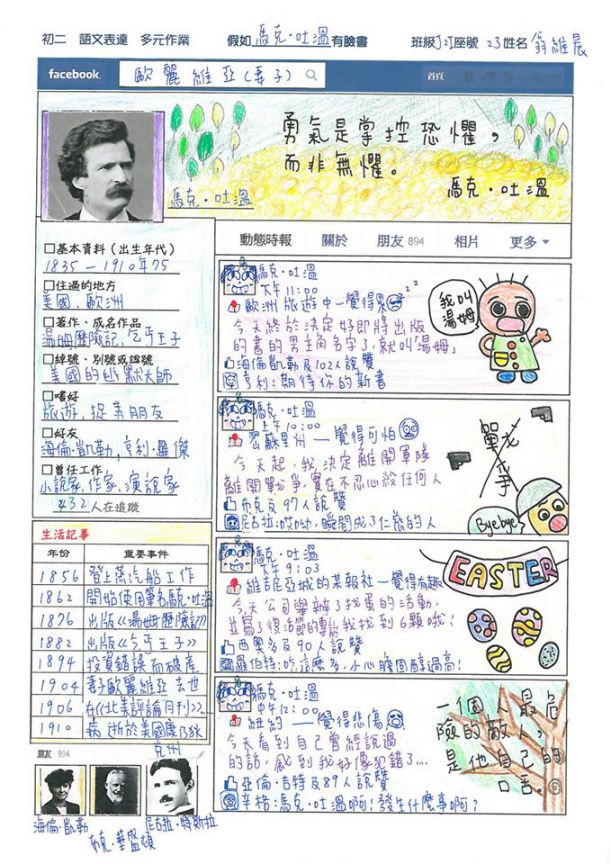 初二 語文表達 多元作業 假如馬克·吐溫有臉書 班級121座號23姓名翁維晨
facebook 歐麗維亞(妻子) 首頁
勇氣是掌控恐懼，
而非無懼。
馬克·吐溫
馬克·吐溫
動態時報 關於 朋友 894 相片 更多
□基本資料（出生年代）
1835－1910年75
□住過的地方
美國、歐洲
□著作、成名作品
湯姆歷險記,乞丐王子
□綽號、別號或諡號
美國的幽默大師
□嗜好
旅遊、捉弄朋友
□好友
海倫·凱勒,亨利·羅傑
□曾任工作
小說家,作家,演說家
432人在追蹤
生活記事
年份 重要事件
1856 登上蒸汽船工作
1862 開始使用筆名馬克·吐溫
1876 出版《湯姆歷險記》
1882 出版《乞丐王子》
1894 投資錯誤而破產
1904 妻子歐麗維亞去世
1906 在《北美評論月刊》..
1910 病逝於美國康乃狄
克州
朋友 894
海倫·凱勒
布克·華盛頓
尼古拉·特斯拉
馬克·吐溫
下午11:00
歐洲旅遊中－覺得累
zzz
今天終於決定好即將出版
的書的男主角名字了,就叫「湯姆」
海倫凱勒及102人說讚
亨利:期待你的新書
我叫
湯姆
馬克·吐溫
上午10:00
密蘇里州－覺得可怕
今天起,我決定離開軍隊
離開戰爭,實在不忍心殺任何人
布克及97人說讚
尼古拉:哎呦,瞬間成了仁慈的人
戰爭
Byebye
馬克·吐溫
下午9:03
維吉尼亞城的某報社－覺得有趣
今天公司舉辦了找蛋的活動,
西奧多及90人說讚
羅伯特:吃這麼多,小心膽固醇過高!
EASTER
馬克·吐溫
中午12:00
紐約－覺得悲傷
今天看到自己曾經說過
的話,感到我好像犯錯了...
亞倫·吉特及89人說讚
辛格:馬克·吐溫啊!發生什麼事啊?
一個人最危
險的敵人,
是他自己的
口舌。